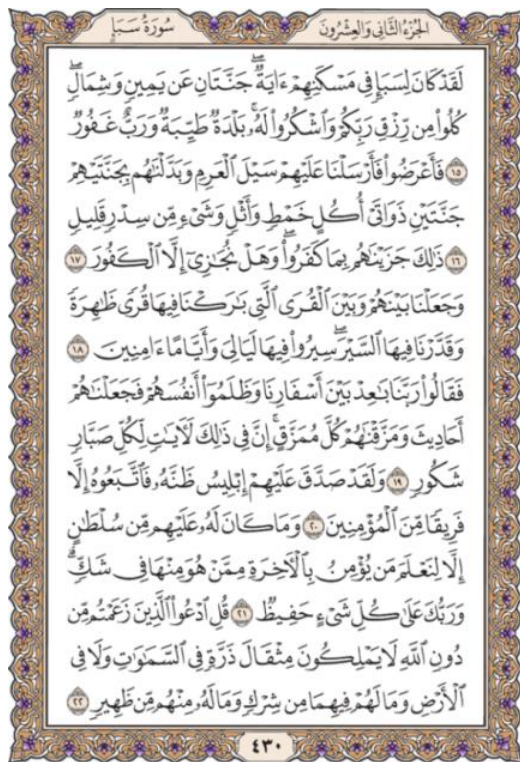 الجُزْءُ الثَّانِي وَالعِشْرُونَ سُورَةُ سَبَإٍ
لَقَدْ كَانَ لِسَبَإٖ فِي مَسْكَنِهِمْ ءَايَةٞۖ جَنَّتَانِ عَن يَمِينٖ وَشِمَالٖۖ
كُلُواْ مِن رِّزْقِ رَبِّكُمْ وَٱشْكُرُواْ لَهُۥۚ بَلْدَةٞ طَيِّبَةٞ وَرَبٌّ غَفُورٞ
١٥ فَأَعْرَضُواْ فَأَرْسَلْنَا عَلَيْهِمْ سَيْلَ ٱلْعَرِمِ وَبَدَّلْنَٰهُم بِجَنَّتَيْهِمْ
جَنَّتَيْنِ ذَوَاتَيْ أُكُلٍ خَمْطٖ وَأَثْلٖ وَشَيْءٖ مِّن سِدْرٖ قَلِيلٖ
١٦ ذَٰلِكَ جَزَيْنَٰهُم بِمَا كَفَرُواْۖ وَهَلْ نُجَٰزِيٓ إِلَّا ٱلْكَفُورَ ١٧
وَجَعَلْنَا بَيْنَهُمْ وَبَيْنَ ٱلْقُرَى ٱلَّتِي بَٰرَكْنَا فِيهَا قُرٗى ظَٰهِرَةٗ
وَقَدَّرْنَا فِيهَا ٱلسَّيْرَۖ سِيرُواْ فِيهَا لَيَالِيَ وَأَيَّامًا ءَامِنِينَ ١٨
فَقَالُواْ رَبَّنَا بَٰعِدْ بَيْنَ أَسْفَارِنَا وَظَلَمُوٓاْ أَنفُسَهُمْ فَجَعَلْنَٰهُمْ
أَحَادِيثَ وَمَزَّقْنَٰهُمْ كُلَّ مُمَزَّقٍۚ إِنَّ فِي ذَٰلِكَ لَأٓيَٰتٖ لِّكُلِّ صَبَّارٖ
شَكُورٖ ١٩ وَلَقَدْ صَدَّقَ عَلَيْهِمْ إِبْلِيسُ ظَنَّهُۥ فَٱتَّبَعُوهُ إِلَّا
فَرِيقٗا مِّنَ ٱلْمُؤْمِنِينَ ٢٠ وَمَا كَانَ لَهُۥ عَلَيْهِم مِّن سُلْطَٰنٍ
إِلَّا لِنَعْلَمَ مَن يُؤْمِنُ بِٱلْأٓخِرَةِ مِمَّنْ هُوَ مِنْهَا فِي شَكّٖۗ
وَرَبُّكَ عَلَىٰ كُلِّ شَيْءٍ حَفِيظٞ ٢١ قُلِ ٱدْعُواْ ٱلَّذِينَ زَعَمْتُم مِّن
دُونِ ٱللَّهِ لَا يَمْلِكُونَ مِثْقَالَ ذَرَّةٖ فِي ٱلسَّمَٰوَٰتِ وَلَا فِي
ٱلْأَرْضِ وَمَا لَهُمْ فِيهِمَا مِن شِرْكٖ وَمَا لَهُۥ مِنْهُم مِّن ظَهِيرٖ ٢٢
٤٣٠